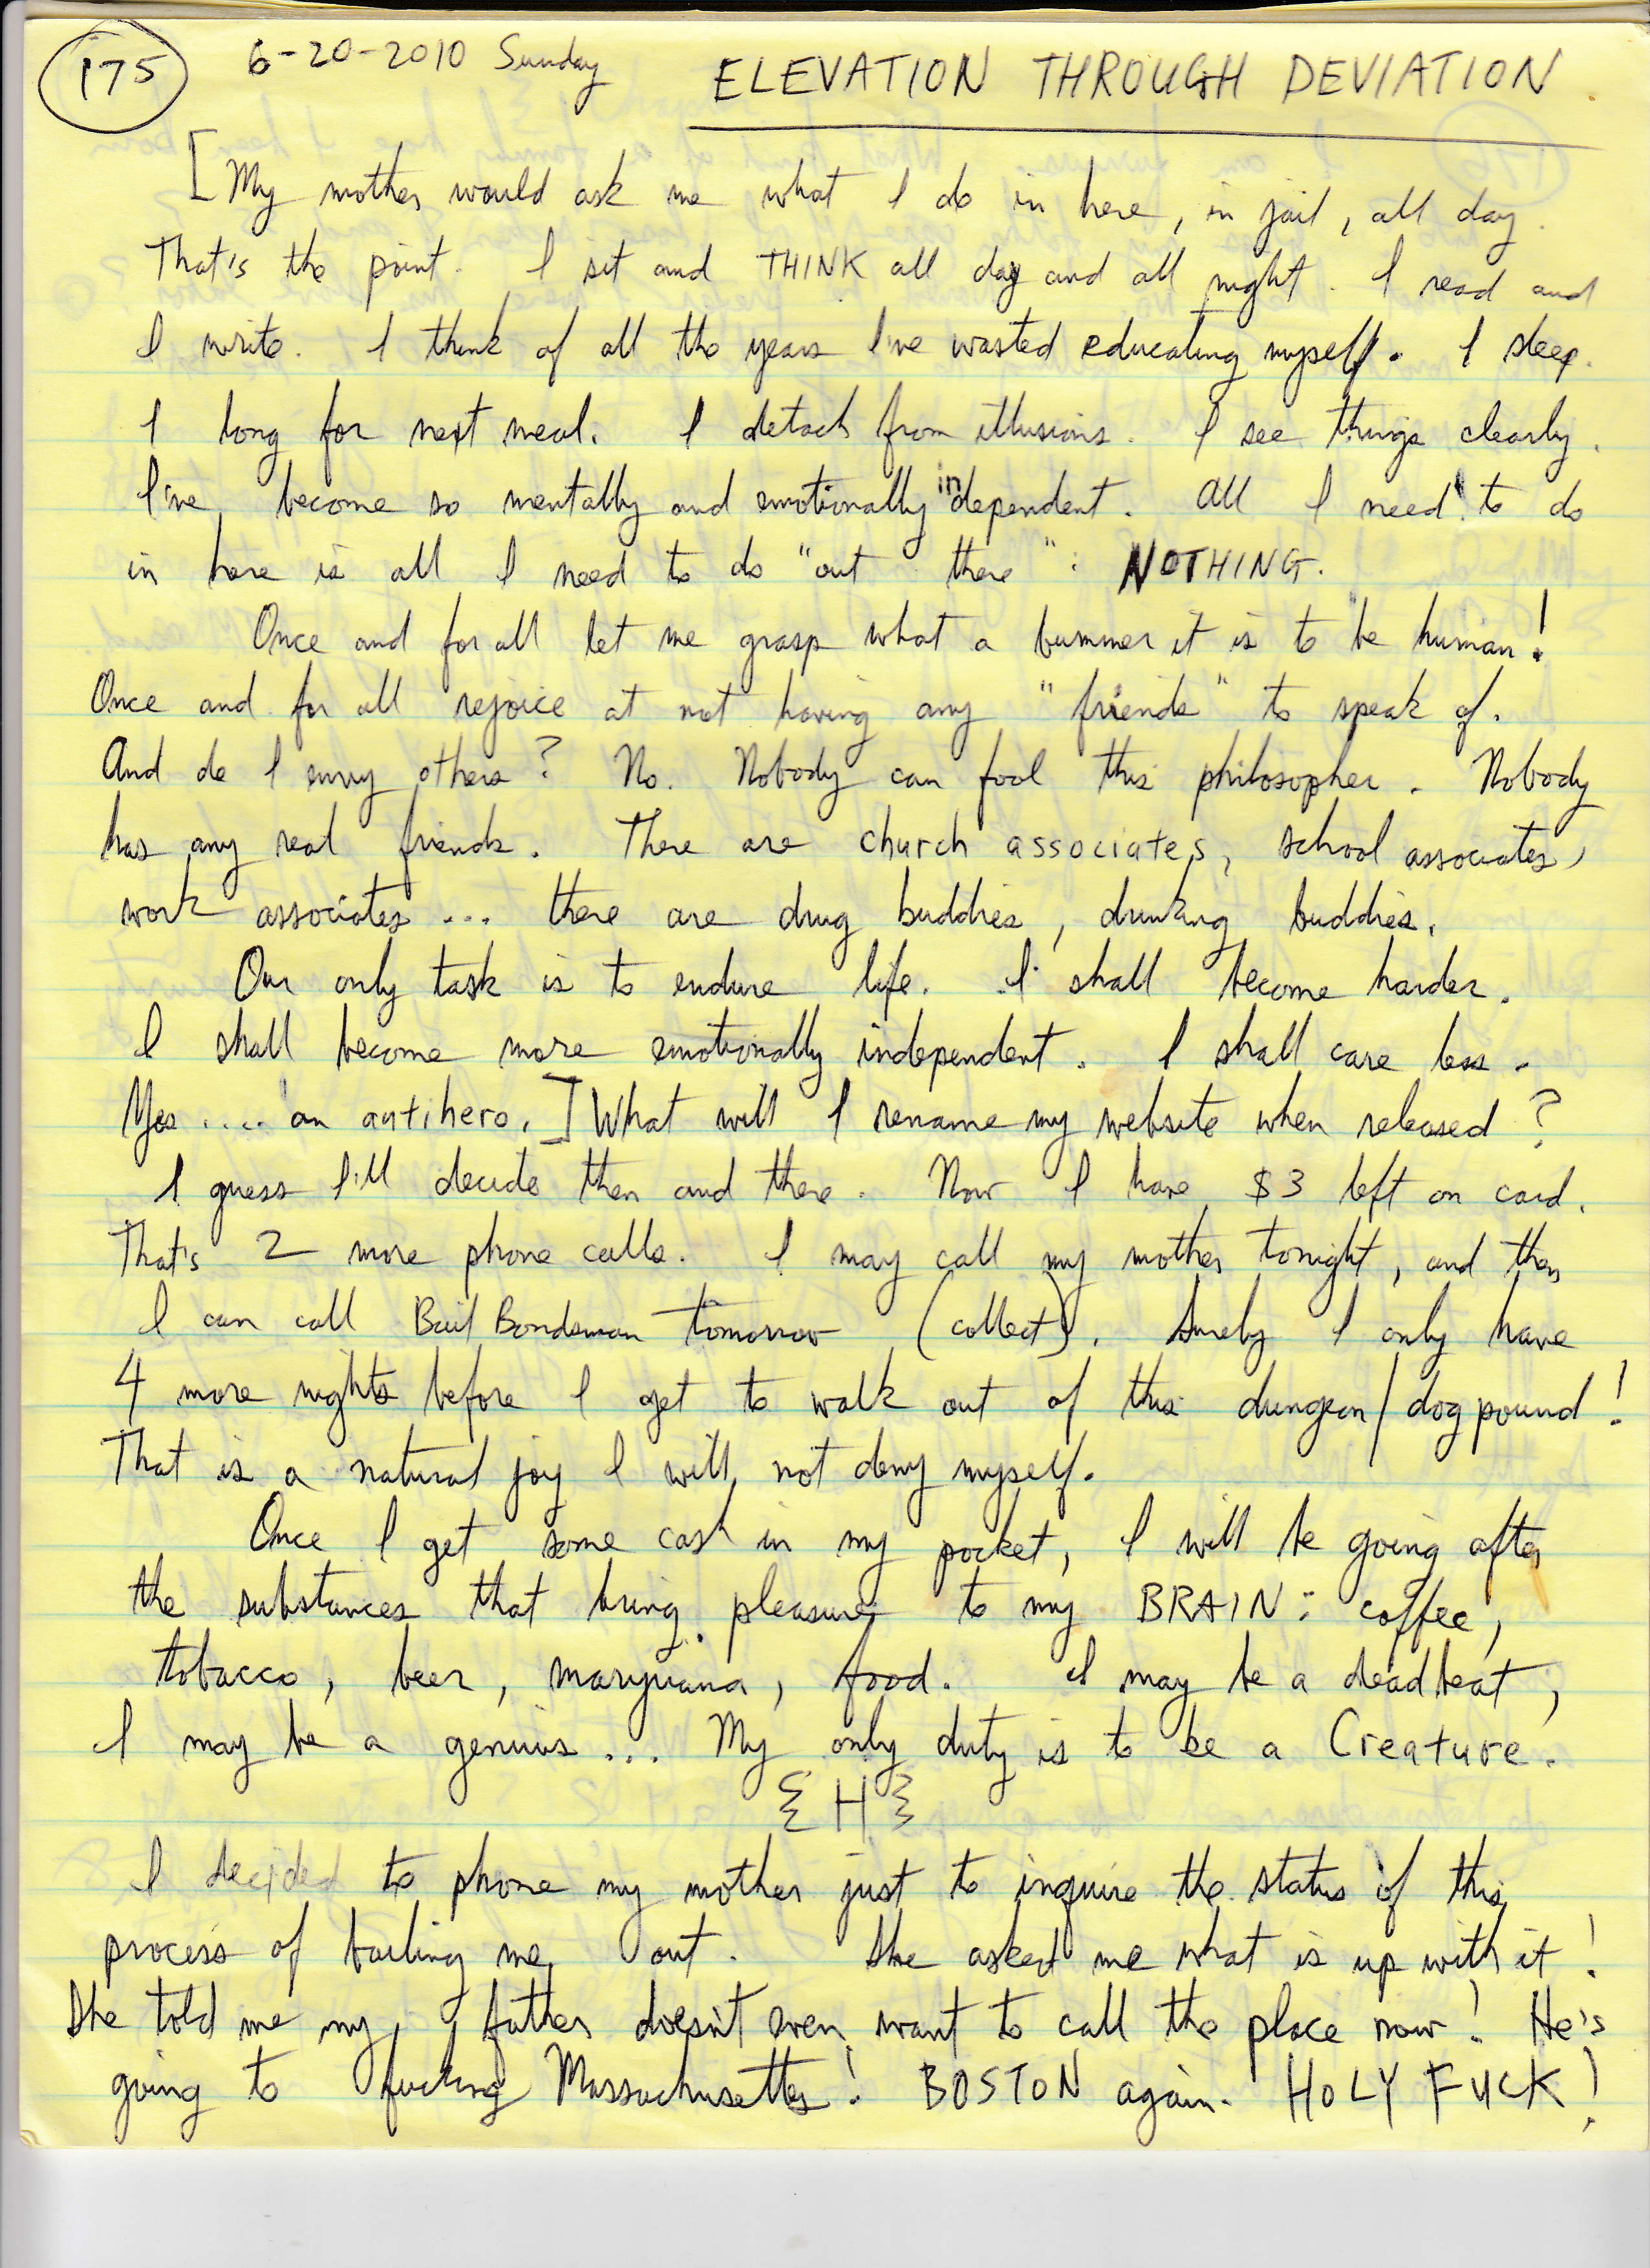 175 6-20-2010 Sunday ELEVATION THROUGH DEVIATION
[My mother would ask me what I do in here, in jail, all day.
That's the point. I sit and THINK all day and all night. I read and
I write. I think of all the years I've wasted educating myself. I sleep.
I long for next meal. I detach from illusions. I see things clearly.
I've become so mentally and emotionally independent. All I need to do
in here is all I need to do "out there": NOTHING.
Once and for all let me grasp what a bummer it is to be human!
Once and for all rejoice at not having any "friends" to speak of.
And do I envy others? No. Nobody can fool this philosopher. Nobody
has any real friends. There are church associates, school associates,
work associates ... there are drug buddies, drinking buddies.
Our only task is to endure life. I shall become harder.
I shall become more emotionally independent. I shall care less.
Yes .... an antihero.] What will I rename my website when released?
I guess I'll decide then and there. Now I have $3 left on card.
That's 2 more phone calls. I may call my mother tonight, and then
I can call Bail Bondsman tomorrow (collect). Surely I only have
4 more nights before I get to walk out of this dungeon/dog pound!
That is a natural joy I will not deny myself.
Once I get some cash in my pocket, I will be going after
the substances that bring pleasure to my BRAIN: coffee,
tobacco, beer, maryjuana, food. I may be a deadbeat,
I may be a genius ... My only duty is to be a Creature.
{H}
I decided to phone my mother just to inquire the status of this
process of bailing me out. She asked me what is up with it!
She told me my father doesn't even want to call the place now! He's
going to fucking Massachusetts! BOSTON again. HOLY FUCK!